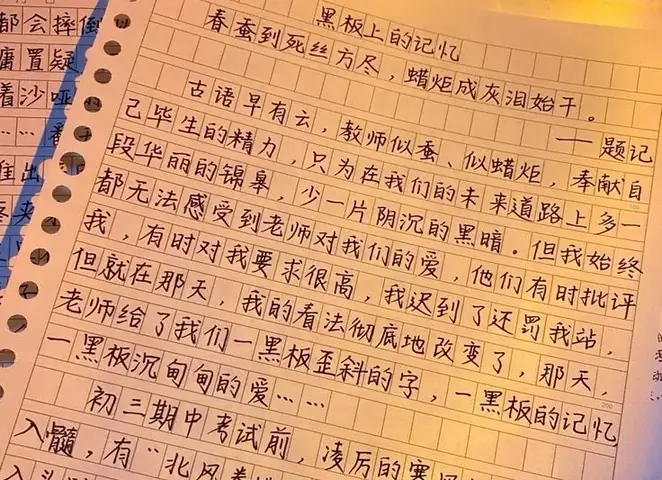 黑板上的记忆
春蚕到死丝方尽，蜡炬成灰泪始干。
——题记
古语早有云，教师似蚕、似蜡炬，奉献自
己毕生的精力，只为在我们的未来道路上多一
段华丽的锦皋，少一片阴沉的黑暗。但我始终
都无法感受到老师对我们的爱，他们有时批评
我，有时对我要求很高，我迟到了还罚我站，
但就在那天，我的看法彻底地改变了，那天，
老师给了我们一黑板歪斜的字，一黑板的记忆
一黑板沉甸甸的爱……
初三期中考试前，凌厉的寒
入髓，有“北风卷
都会摔倒
庸置疑
着沙哑